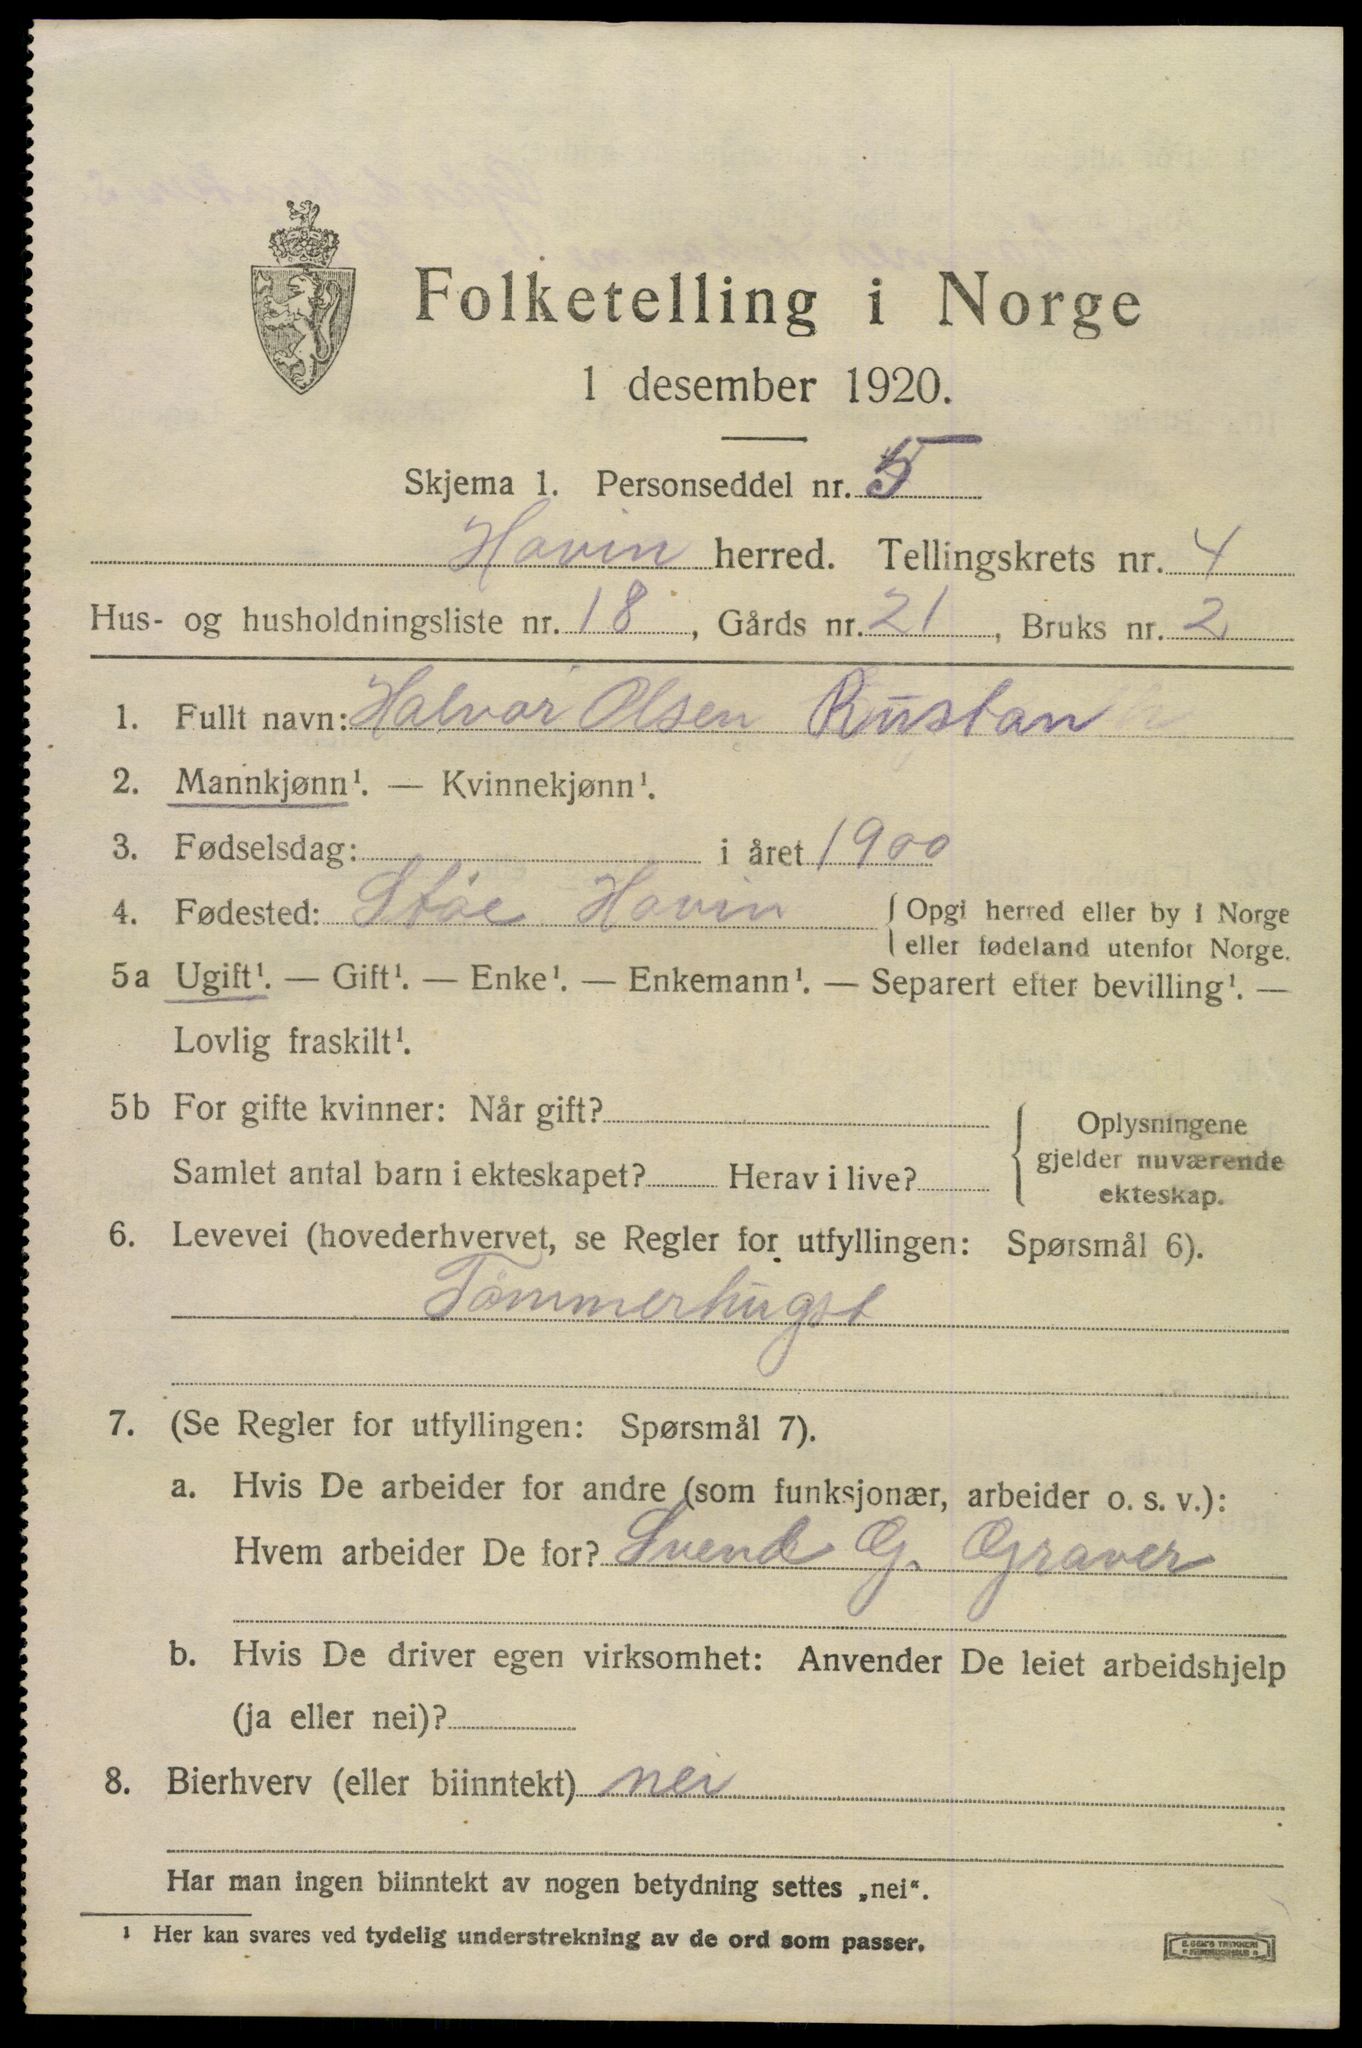 Folketelling i Norge
1 desember 1920.
Skjema 1. Personseddel nr. 5
Hovin herred. Tellingskrets nr. 4
Hus- og husholdningsliste nr. 18, Gårds nr. 21, Bruks nr. 2
1. Fullt navn: Halvor Olsen Rustan
2. Mannkjønn¹. — Kvinnekjønn¹.
3. Fødselsdag: i året 1900
4. Fødested: Støe Hovin { Opgi herred eller by i Norge
eller fødeland utenfor Norge.
5a Ugift¹. — Gift¹. — Enke¹. — Enkemann¹. — Separert efter bevilling¹. —
Lovlig fraskilt¹.
5b For gifte kvinner: Når gift?
Samlet antal barn i ekteskapet? Herav i live?
Oplysningene
gjelder nuværende
ekteskap.
6. Levevei (hovederhvervet, se Regler for utfyllingen: Spørsmål 6).
Tømmerhugst
7. (Se Regler for utfyllingen: Spørsmål 7).
a. Hvis De arbeider for andre (som funksjonær, arbeider o. s. v.):
Hvem arbeider De for? Svend G. Graver
b. Hvis De driver egen virksomhet: Anvender De leiet arbeidshjelp
(ja eller nei)?
8. Bierhverv (eller biinntekt) nei
Har man ingen biinntekt av nogen betydning settes „nei“.
¹ Her kan svares ved tydelig understrekning av de ord som passer.